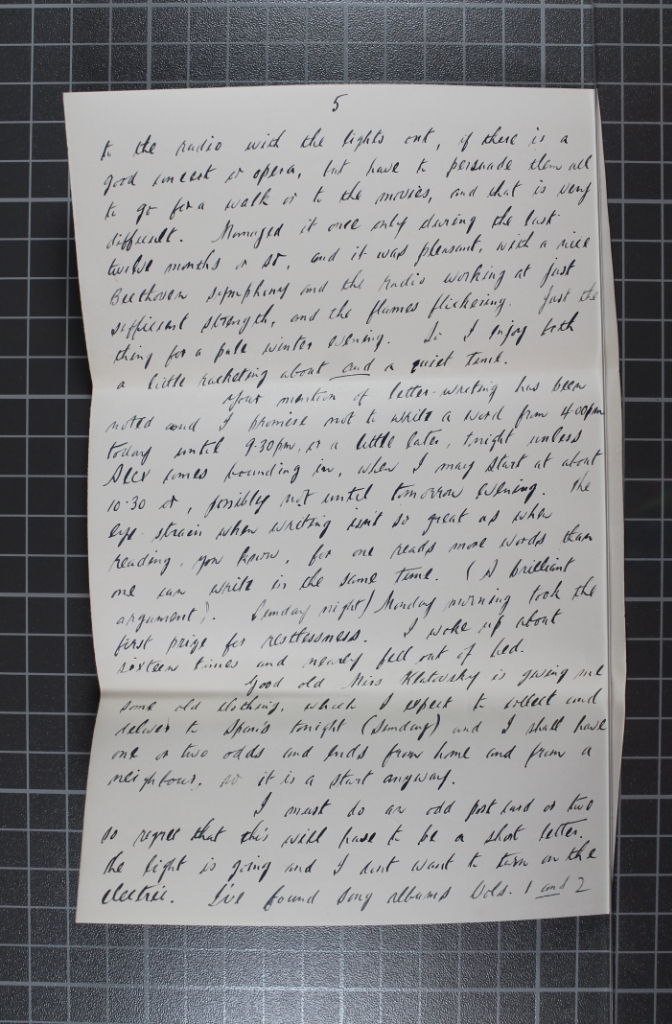 5
to the radio with the lights out, if there is a
good concert or opera, but have to persuade them all
to go for a walk or to the movies, and that is very
difficult. Managed it once only during the last
twelve months or so, and it was pleasant, with a nice
Beethoven symphony and the radio working at just
sufficient strength, and the flames flickering. Just the
thing for a pale winter evening. So I enjoy both
a little racketing about and a quiet time.
Your mention of letter-writing has been
noted and I promise not to write a word from 4.00pm
today until 9.30pm, or a little later, tonight unless
Alex comes bounding in, when I may start at about
10.30 or, possibly not until tomorrow evening. The
eye-strain when writing isn't so great as when
reading, you know, for one reads more words than
one can write in the same time. (A brilliant
argument). Sunday night/Monday morning took the
first prize for restlessness. I woke up about
sixteen times and nearly fell out of bed.
Good old Miss Klatovsky is giving me
some old clothing, which I expect to collect and
deliver to Spain's tonight (Sunday) and I shall have
one or two odds and ends from home and from a
neighbour, so it is a start anyway.
I must do an odd post card or two
so regret that this will have to be a short letter.
The light is going and I don't want to turn on the
electric. I've found song albums Vols. 1 and 2